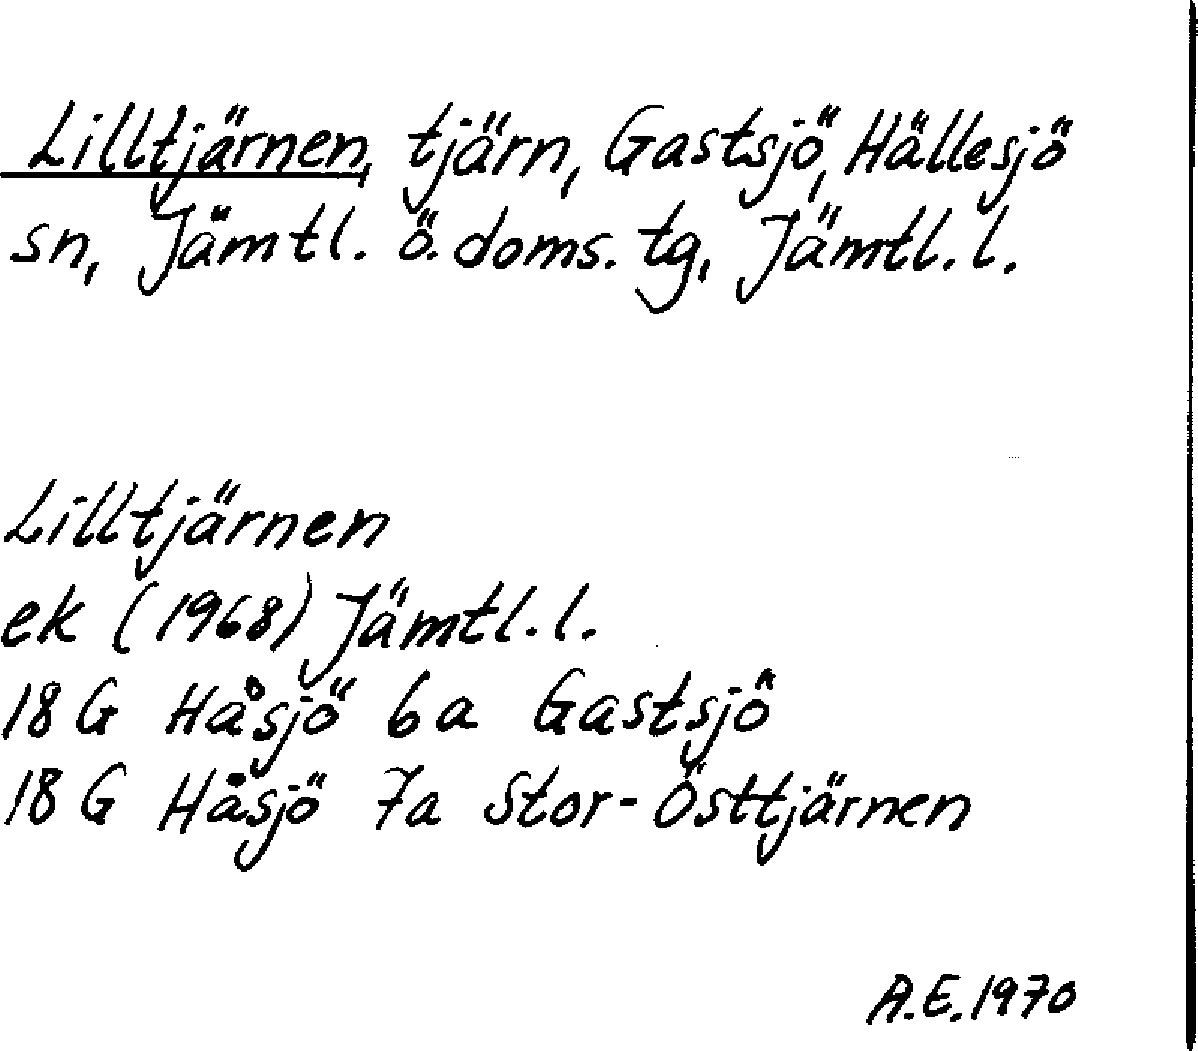 Lilltjärnen, tjärn, Gastsjö, Hällesjö
sn, Jämtl. ö. doms. tg, Jämtl. l.
Lilltjärnen
ek (1968) Jämtl. l.
18 G Håsjö 6a Gastsjö
18 G Håsjö 7a Stor-Östtjärnen
A.E. 1970